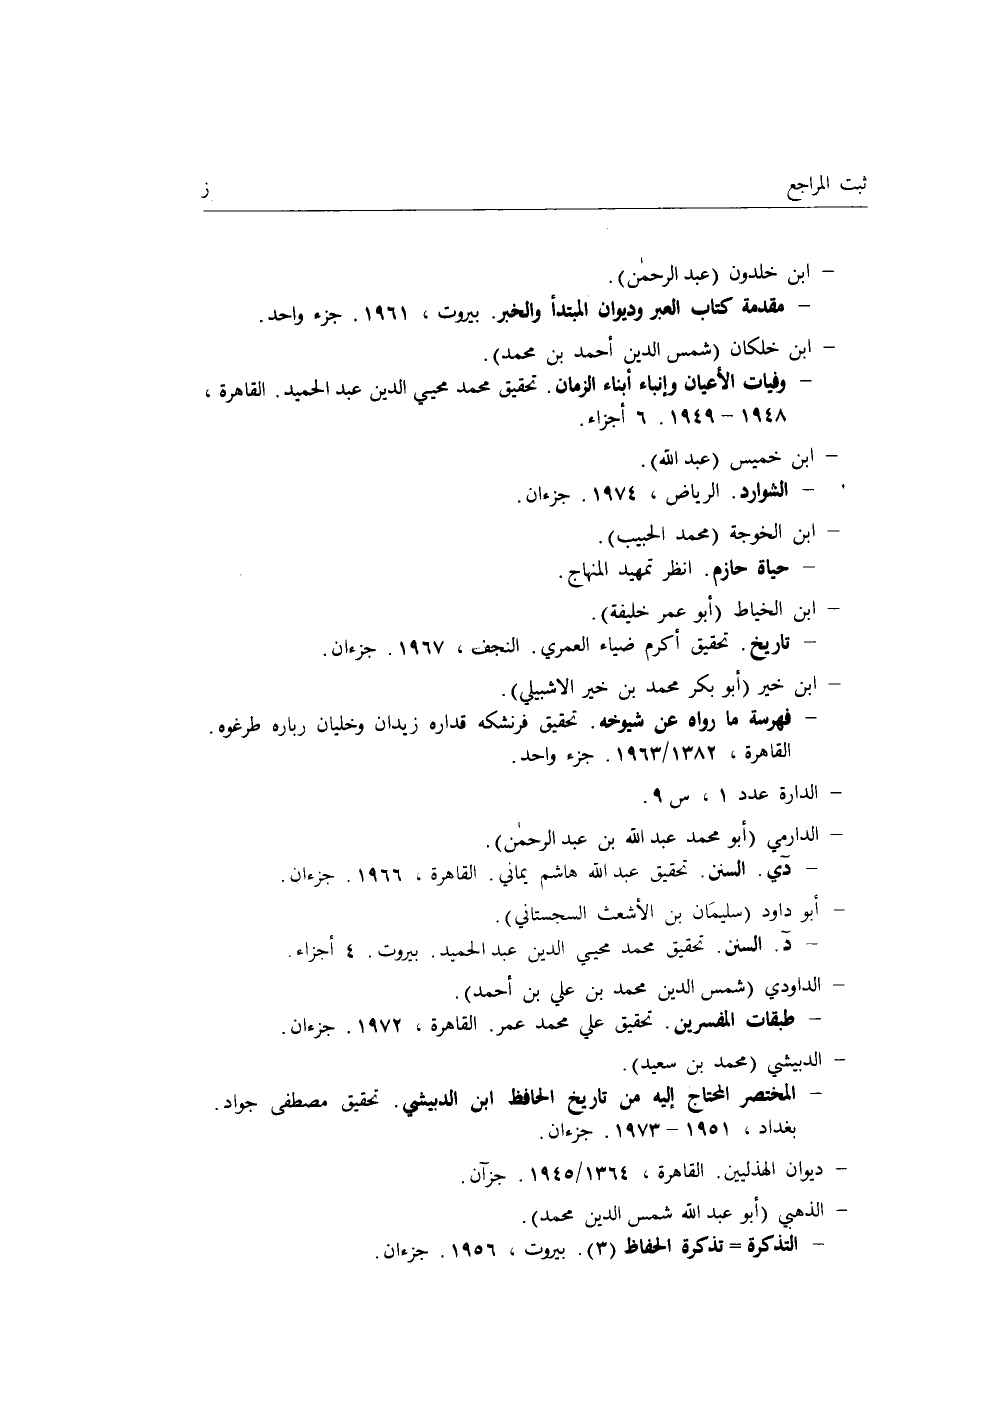 ثبت المراجع ز
– ابن خلدون (عبد الرحمٰن).
– مقدمة كتاب العبر وديوان المبتدأ والخبر. بيروت ، ١٩٦١. جزء واحد.
– ابن خلكان (شمس الدين أحمد بن محمد).
– وفيات الأعيان وإنباء أبناء الزمان. تحقيق محمد محيي الدين عبد الحميد. القاهرة ،
١٩٤٨ – ١٩٤٩. ٦ أجزاء.
– ابن خميس (عبد الله).
– الشوارد. الرياض ، ١٩٧٤. جزءان.
– ابن الخوجة (محمد الحبيب).
– حياة حازم. انظر تمهيد المنهاج.
– ابن الخياط (أبو عمر خليفة).
– تاريخ. تحقيق أكرم ضياء العمري. النجف ، ١٩٦٧. جزءان.
– ابن خير (أبو بكر محمد بن خير الاشبيلي).
– فهرسة ما رواه عن شيوخه. تحقيق فرنشكه قداره زيدان وخليان رباره طرغوه.
القاهرة ، ١٩٦٣/١٣٨٢. جزء واحد.
– الدارة عدد ١ ، س ٩.
– الدارمي (أبو محمد عبد الله بن عبد الرحمٰن).
– دَي. السنن. تحقيق عبد الله هاشم يماني. القاهرة ، ١٩٦٦. جزءان.
– أبو داود (سليمَان بن الأشعث السجستاني).
– دَ. السنن. تحقيق محمد محيي الدين عبد الحميد. بيروت. ٤ أجزاء.
– الداودي (شمس الدين محمد بن علي بن أحمد).
– طبقات المفسرين. تحقيق علي محمد عمر. القاهرة ، ١٩٧٢. جزءان.
– الدبيشي (محمد بن سعيد).
– المختصر المحتاج إليه من تاريخ الحافظ ابن الدبيشي. تحقيق مصطفى جواد.
بغداد ، ١٩٥١ – ١٩٧٣. جزءان.
– ديوان الهذليين. القاهرة ، ١٩٤٥/١٣٦٤. جزآن.
– الذهبي (أبو عبد الله شمس الدين محمد).
– التذكرة = تذكرة الحفاظ (٣). بيروت ، ١٩٥٦. جزءان.